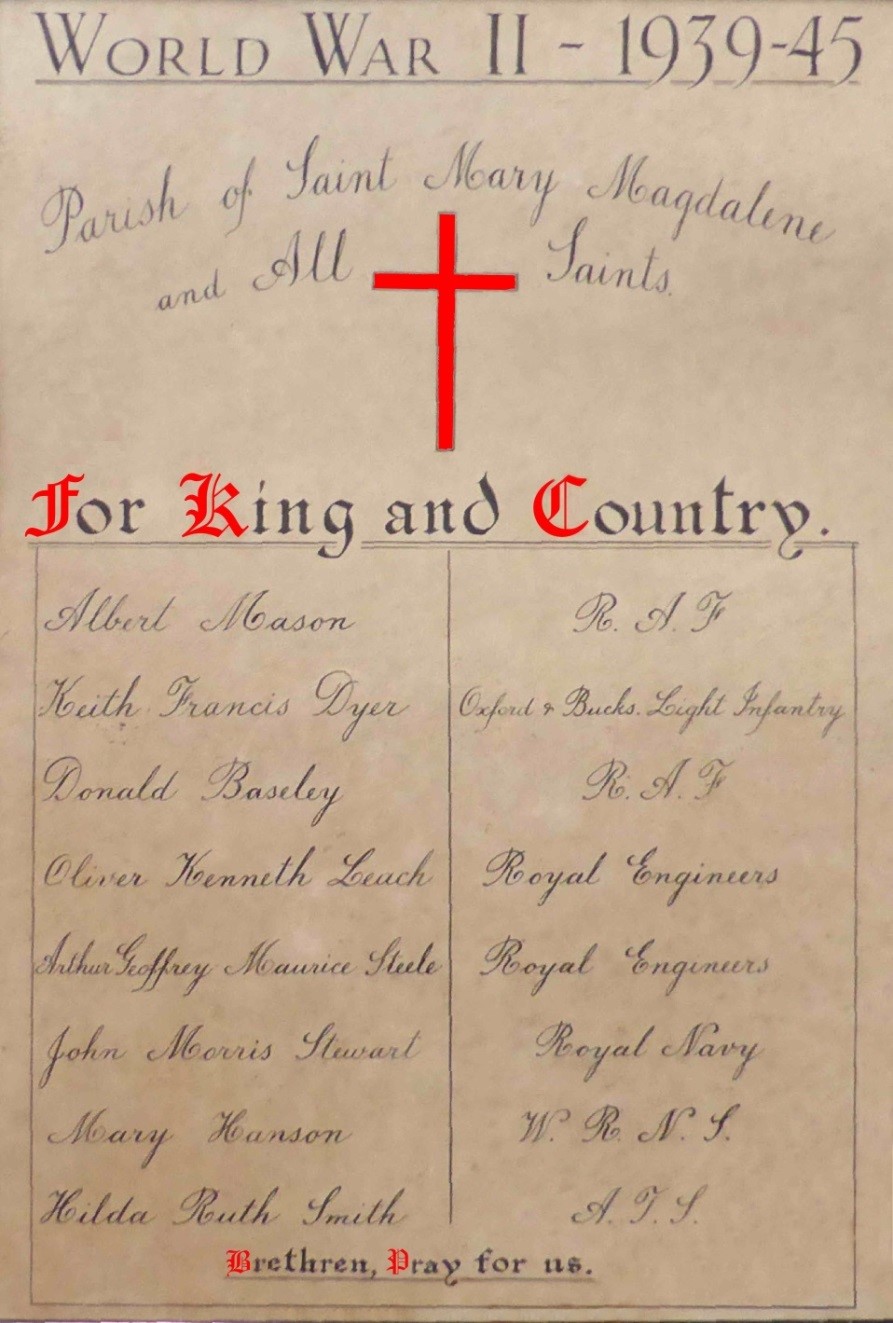 WORLD WAR II - 1939-45
Parish of Saint Mary Magdalene
and All Saints.
For King and Country.
Albert Mason R. A. F
Keith Francis Dyer Oxford & Bucks. Light Infantry
Donald Baseley R. A. F
Oliver Kenneth Leach Royal Engineers
Arthur Geoffrey Maurice Steele Royal Engineers
John Morris Stewart Royal Navy
Mary Hanson W. R. N. S.
Hilda Ruth Smith A. T. S.
Brethren, Pray for us.